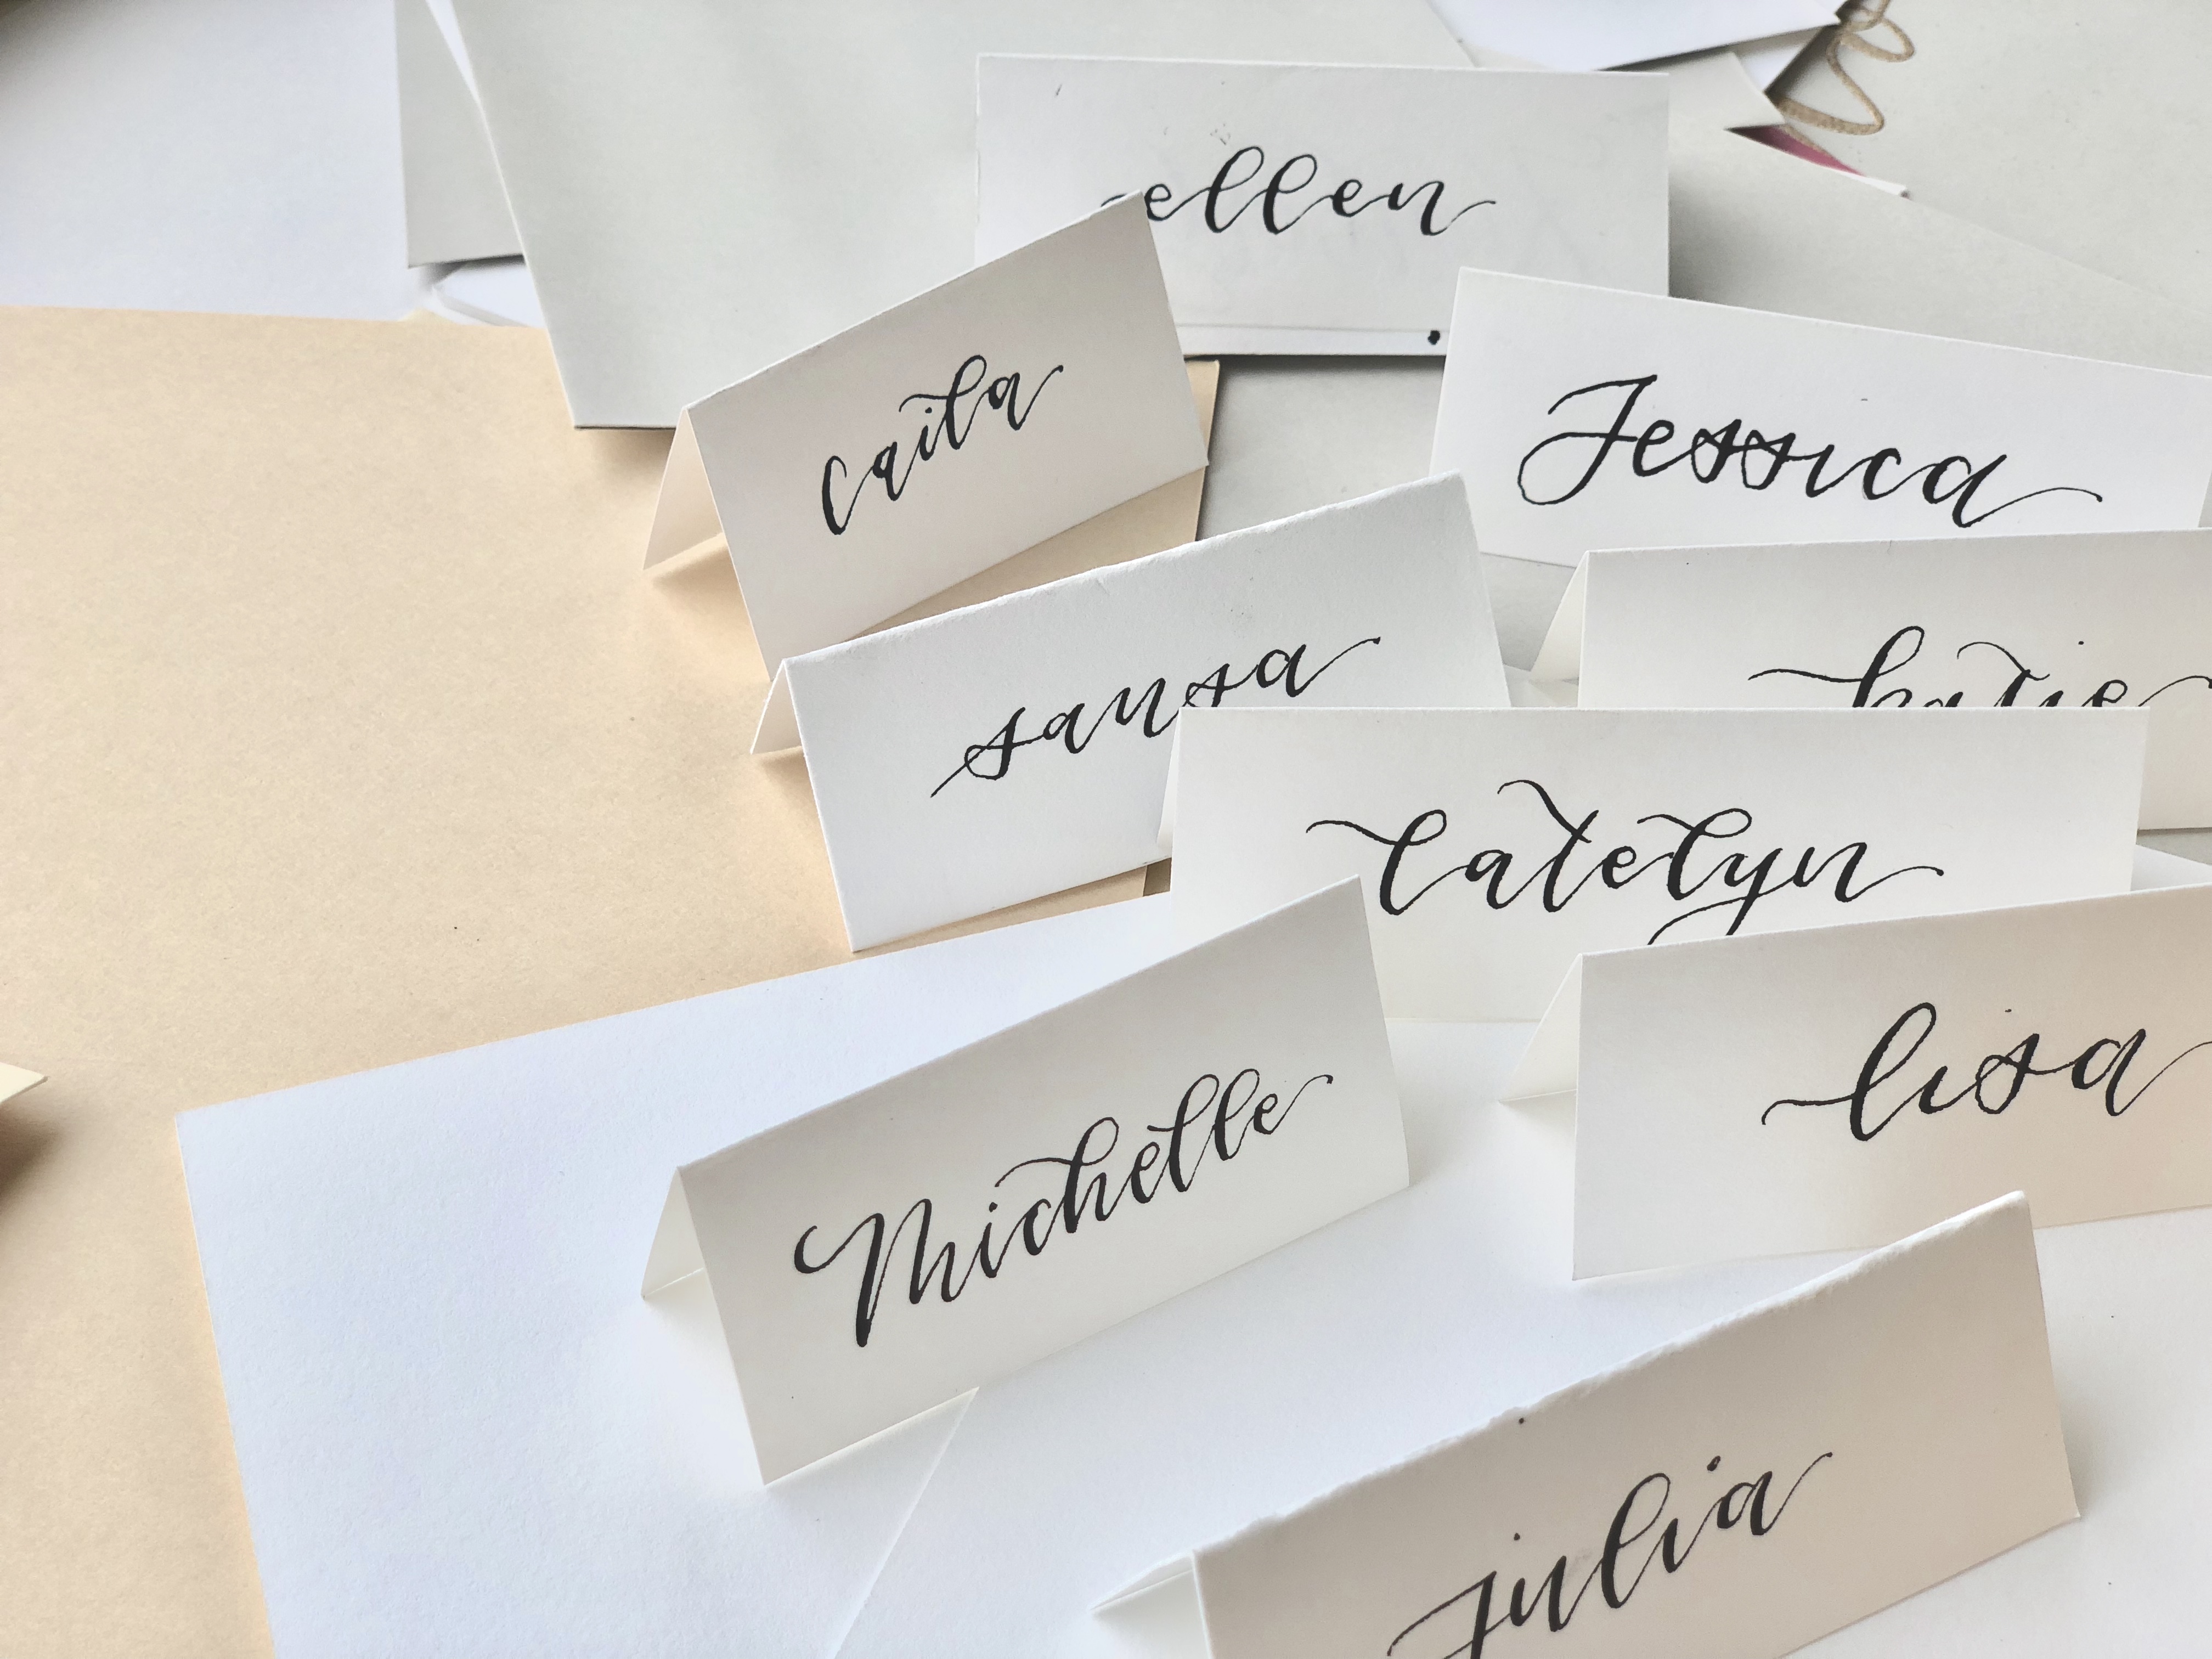 ellen
caila
Jessica
sansa
katie
Catelyn
Michelle
lisa
julia